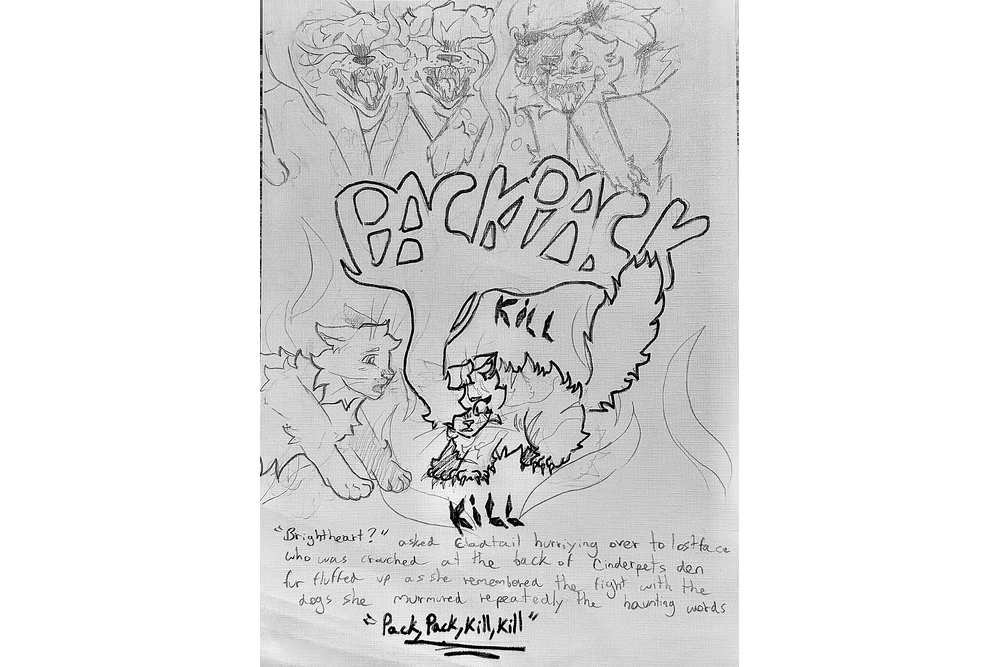 PACK PACK
KiLL
KiLL
"Brightheart?" asked Cloadtail hurriying over to lostface
who was crouched at the back of Cinderpets den
fur fluffed up as she remembered the fight with the
dogs she murmured repeatedly the haunting words
"Pack, Pack, Kill, Kill"